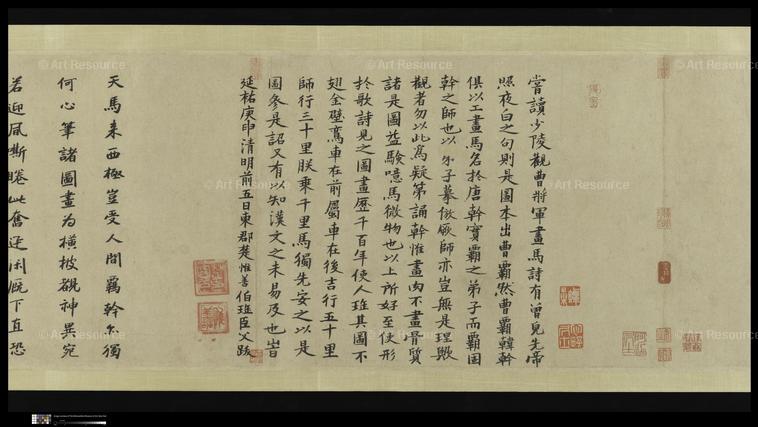 嘗讀少陵觀曹將軍畫馬詩有曽見先帝
照夜白之句則是圖本出曹霸然曹霸韓幹
俱以工畫馬名扵唐幹實霸之弟子而霸固
幹之師也以弟子摹倣厥師亦豈無是理歟
觀者勿以此為疑第誦幹惟畫肉不畫骨質
諸是圖益驗噫馬微物也以上所好至使形
扵歌詩見之圖畫歷千百年使人班其圖不
翅全璧鸞車在前屬車在後吉行五十里
師行三十里朕乗千里馬獨先安之以是
圖參是詔又有以知漢文之未易及也旹
延祐庚申清明前五日東郡楚惟善伯珪臣父跋
天馬来西極豈受人間羈幹尓獨
何心筆諸圖畫為橫披觀神異宛
若迎風嘶睠此奮迅閑厩下直恐
© Art Resource
© Art Resource
© Art Resource
© Art Resource
© Art Resource
© Art Resource
© Art Resource
© Art Resource
© Art Resource